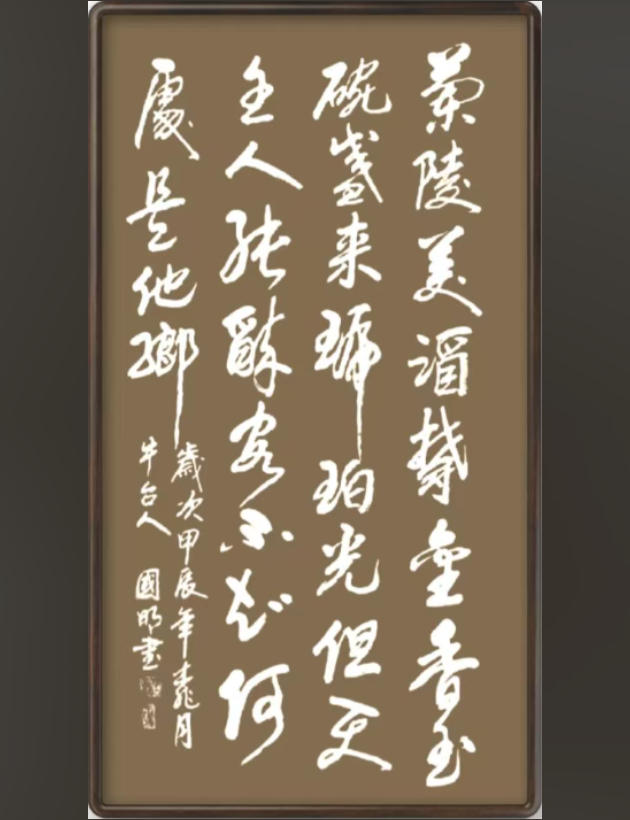 蘭陵美酒鬱金香玉
碗盛来琥珀光但使
主人能醉客不知何
處是他鄉
歲次甲辰年月
牛台人 國明書